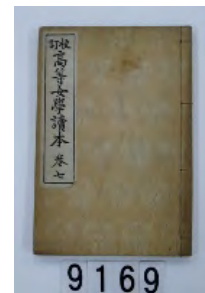 訂校
高等女學讀本 卷七
9169